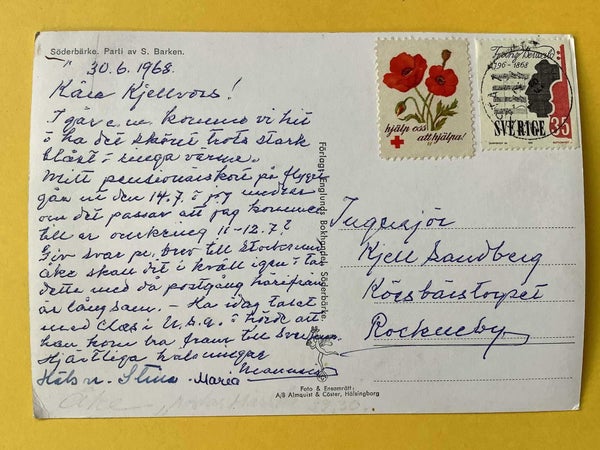 Söderbärke. Parti av S. Barken.
30.6.1968.
Kära Kjellvors!
I går e.m. kommo vi hit
i ha det skönt trots stark
blåst i inga värme.
Mitt pensionärskort på flyget
går in den 14.7. i jag undrar
om det passar att jag kommer
till er omkring 11-12.7?
Giv svar pr. brev till
Åke skall dit i kväll igen
dette med då postgång härifrån
är långsam. - Ha idag talat
med Claes i U.S.A. i hörde att
han kom bra fram till
Hjärtliga hälsningar
Mamma
Häls. n. Stina - Maria
Åke
Förlag: Englunds Bokhandel, Söderbärke
Foto & Ensamrätt:
A/B Almquist & Cöster, Hälsingborg
hjälp oss
att hjälpa!
1796-1868
SVERIGE 35
Ingenjör
Kjell Sandberg
Körsbärstorpet
Rockneby